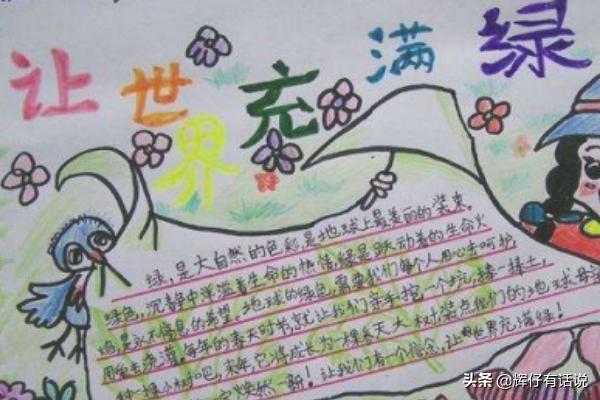 让世界充满绿
绿,是大自然的色彩,是地球上最美丽的装束。
绿色,沉静中洋溢着生命的热情,绿是跃动着的生命火
焰,是永不停息的希望。地球的绿色,需要我们每个人用心去呵护
用爱去浇灌,每年的春天时节,就让我们亲手挖一个坑,捧一捧土,
种一棵小树吧,来年,它将成长为一棵参天大树,装点我们的地球母亲
焕然一新!让我们有一个信念,让世界充满绿!
头条 @辉仔有话说